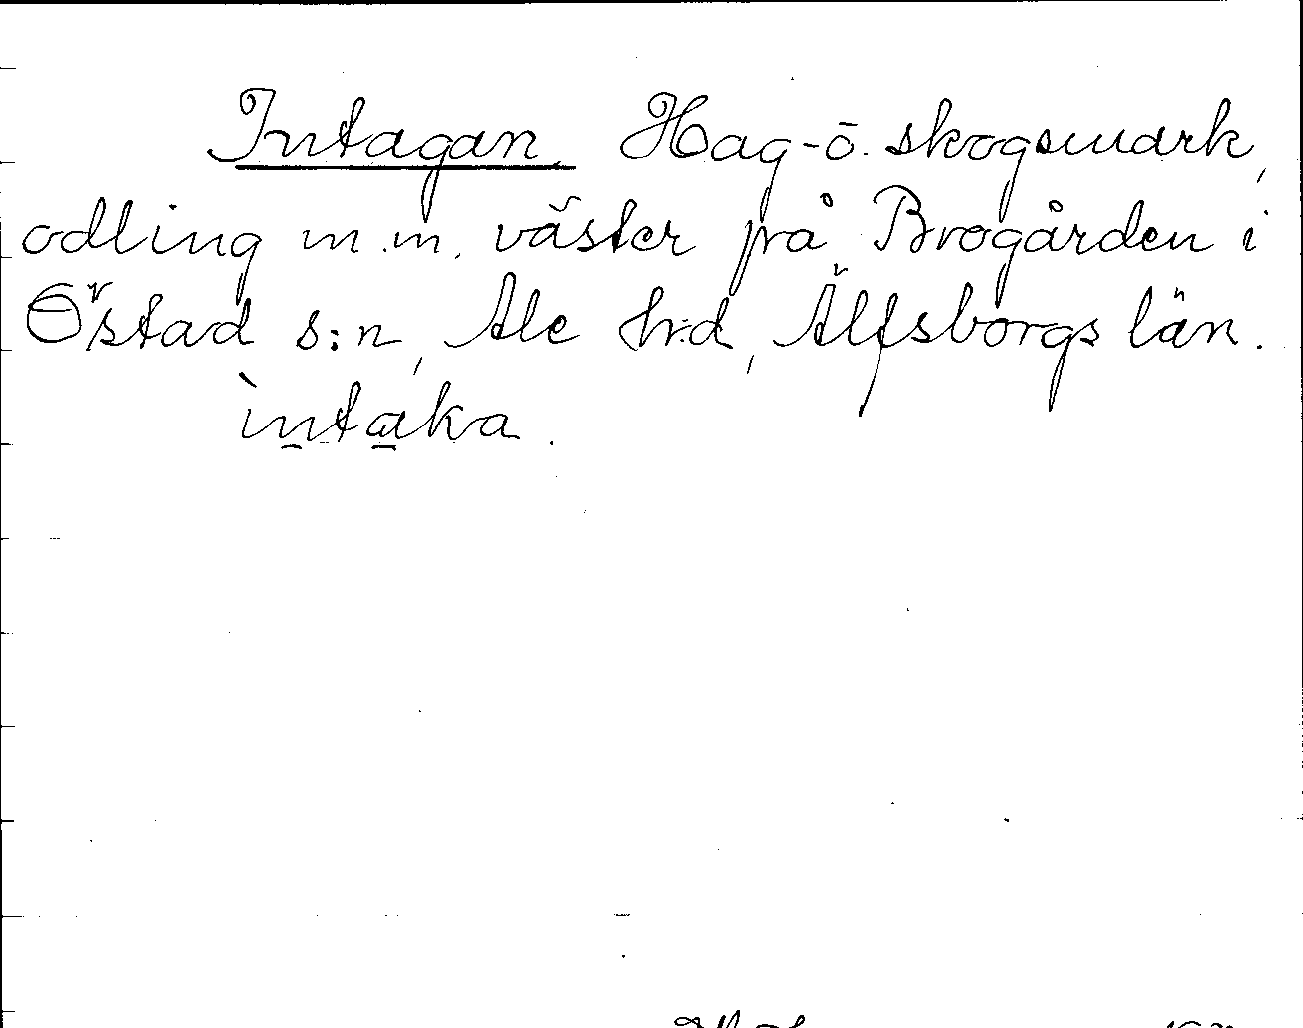 Intagan. Hag- ō. skogsmark,
odling m.m. väster på Brogården i
Östad s:n, Ale hrd, Älfsborgs län.
ìntaka.